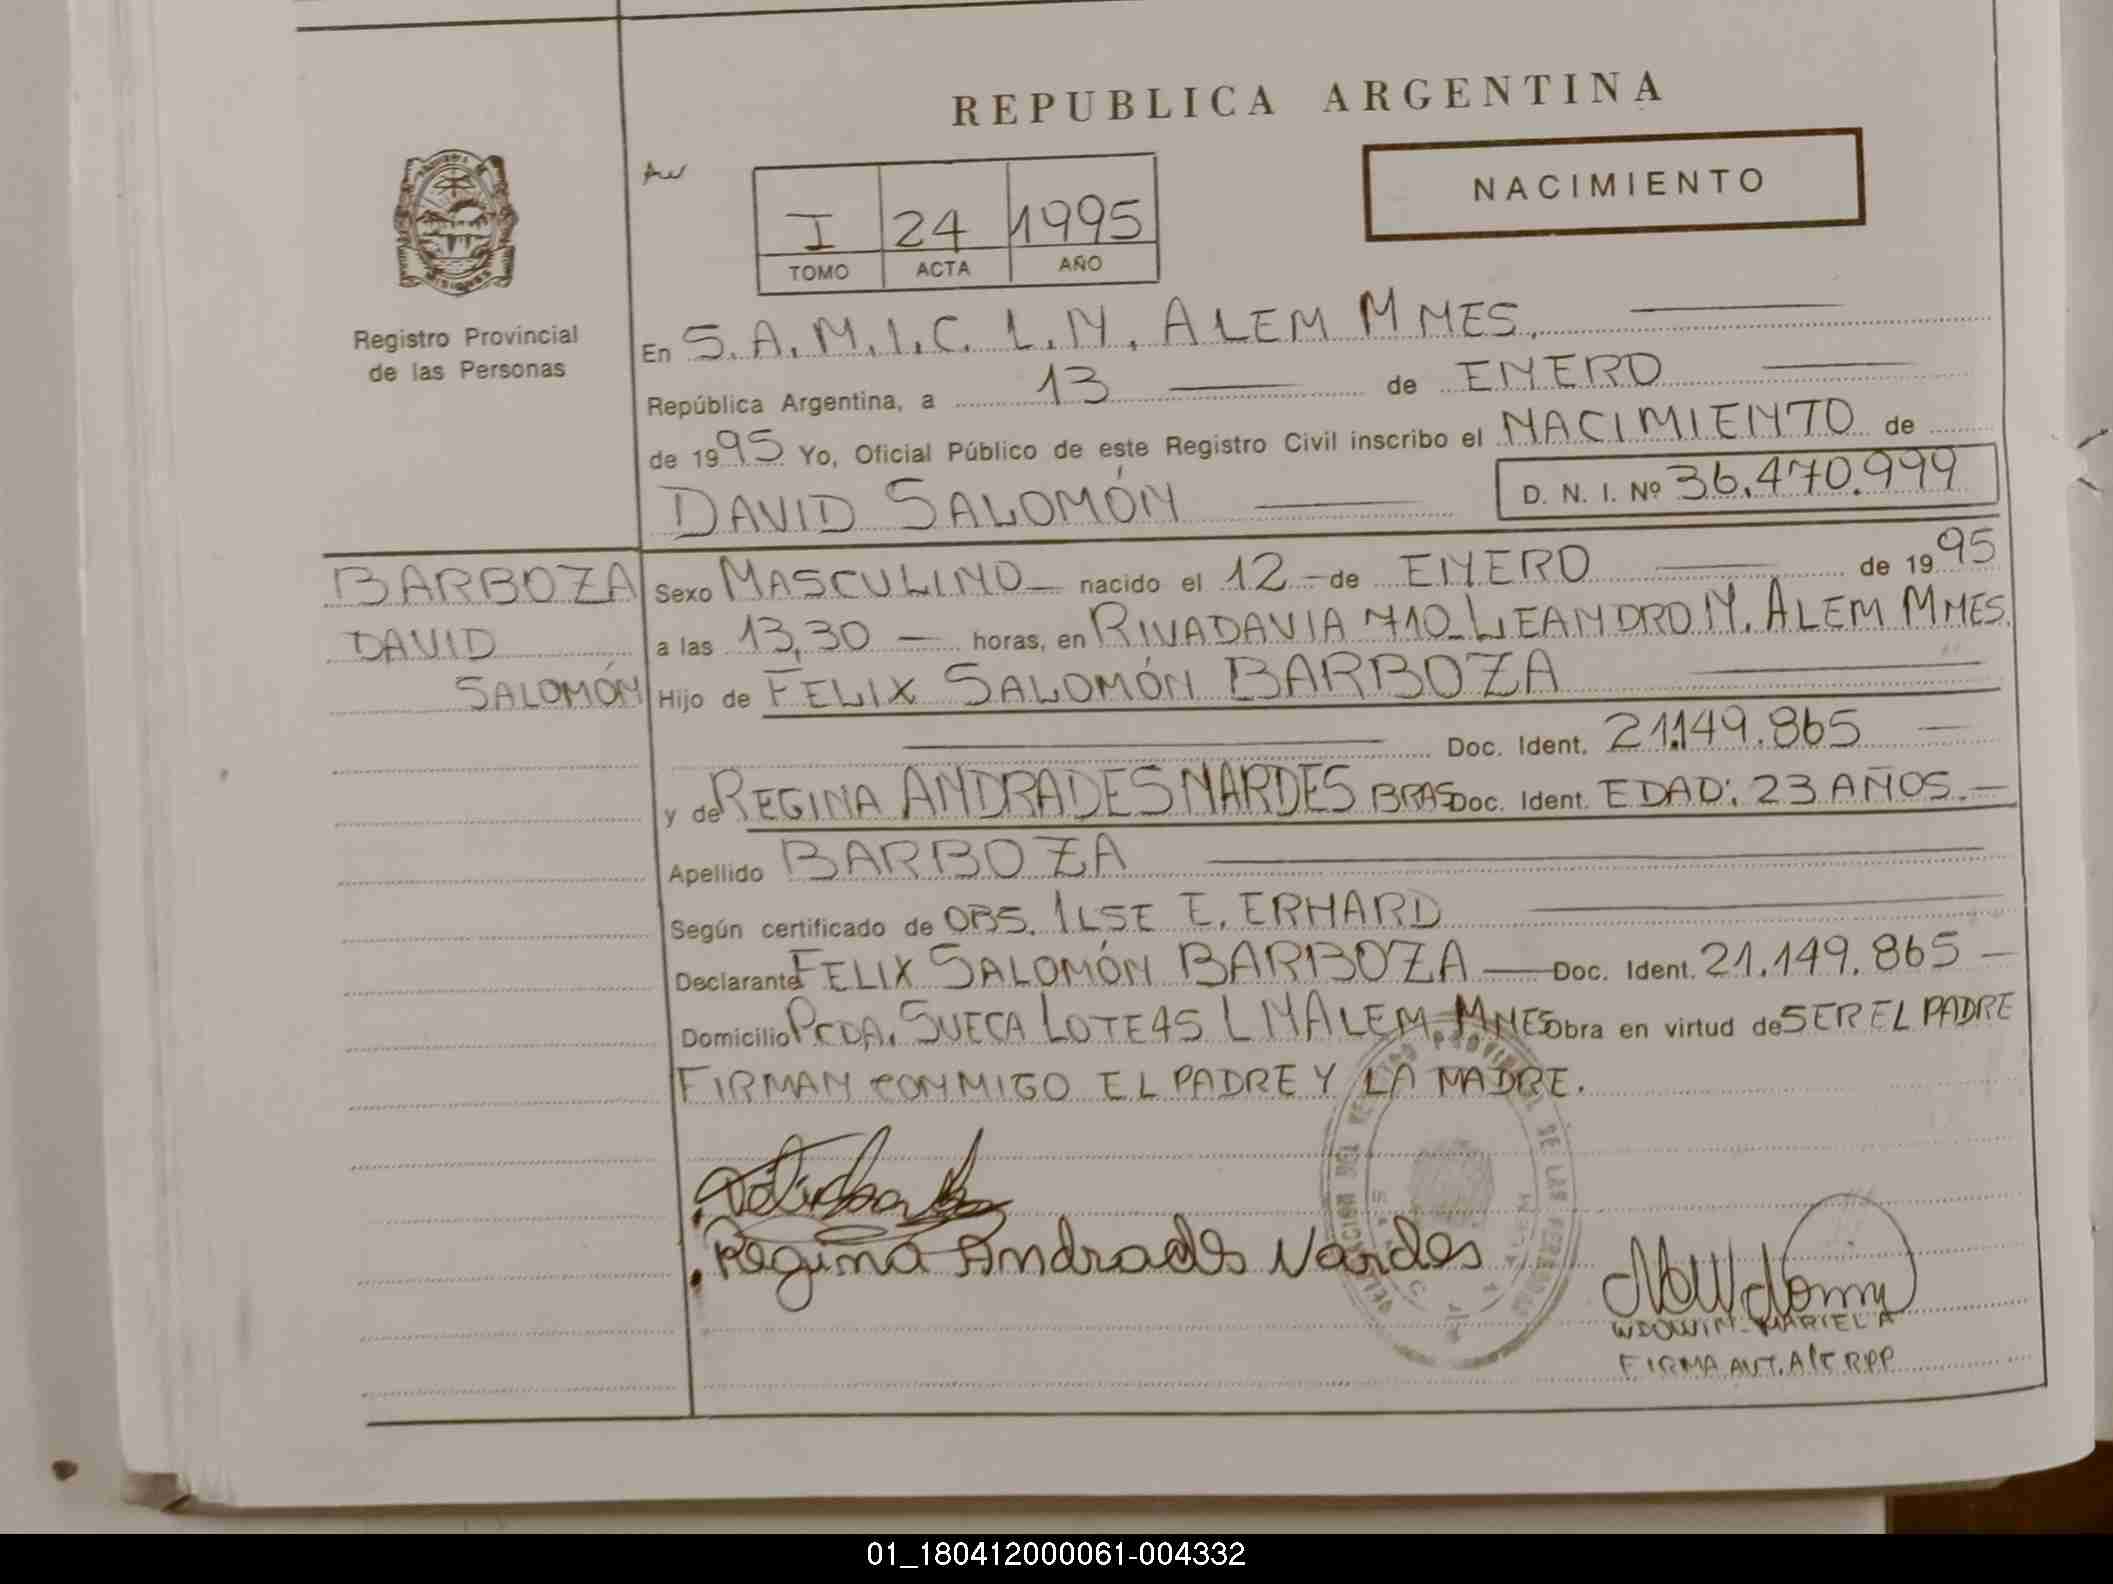 REPUBLICA ARGENTINA
NACIMIENTO
I 24 1995
TOMO ACTA AÑO
Registro Provincial
de las Personas
En S.A.M.I.C. L.N. ALEM MNES.
República Argentina, a 13 de ENERO
de 1995 Yo, Oficial Público de este Registro Civil inscribo el NACIMIENTO de
DAVID SALOMÓN D. N. I. Nº 36.470.999
BARBOZA
DAVID
SALOMÓN
Sexo MASCULINO nacido el 12 de ENERO de 1995
a las 13,30 horas, en RIVADAVIA 710 - LEANDRO N. ALEM MNES.
Hijo de FELIX SALOMÓN BARBOZA
Doc. Ident. 21.149.865
y de REGINA ANDRADES NARDES BRAS Doc. Ident. EDAD: 23 AÑOS.
Apellido BARBOZA
Según certificado de OBS. ILSE E. ERHARD
Declarante FELIX SALOMÓN BARBOZA Doc. Ident. 21.149.865
Domicilio PCDA. SUECA LOTE 45 L N ALEM. MNES Obra en virtud de SER EL PADRE
FIRMAN CONMIGO EL PADRE Y LA MADRE.
Regina Andrades Nardes
WDOWIN MARIELA
FIRMA AUT. A/C RPP
01_180412000061-004332